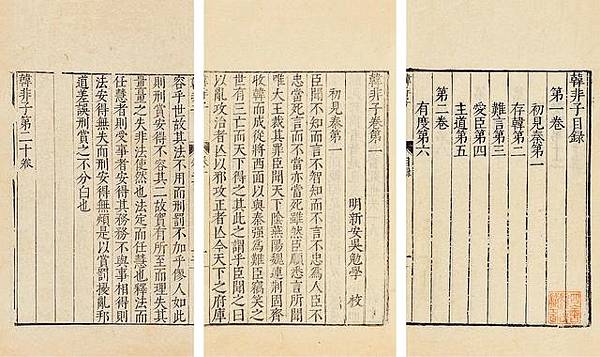 韓非子目録
第一卷
初見秦第一
存韓第二
難言第三
愛臣第四
主道第五
第二卷
有度第六
韓非子卷第一
明新安吳勉學 校
初見秦第一
臣聞不知而言不智知而不言不忠為人臣不
忠當死言而不當亦當死雖然臣願悉言所聞
唯大王裁其罪臣聞天下陰燕陽魏連荊固齊
收韓而成從將西面以與秦強為難臣竊笑之
世有三亡而天下得之其此之謂乎臣聞之曰
以亂攻治者亾以邪攻正者亾今天下之府庫
容乎世故其法不用而刑罰不加乎僇人如此
則刑賞安得不容其二故實有所至而理失其
量量之失非法使然也法定而任慧也釋法而
任慧者則受事者安得其務務不與事相得則
法安得無失而刑安得無煩是以賞罰擾亂邦
道差誤刑賞之不分白也
韓非子第二十卷